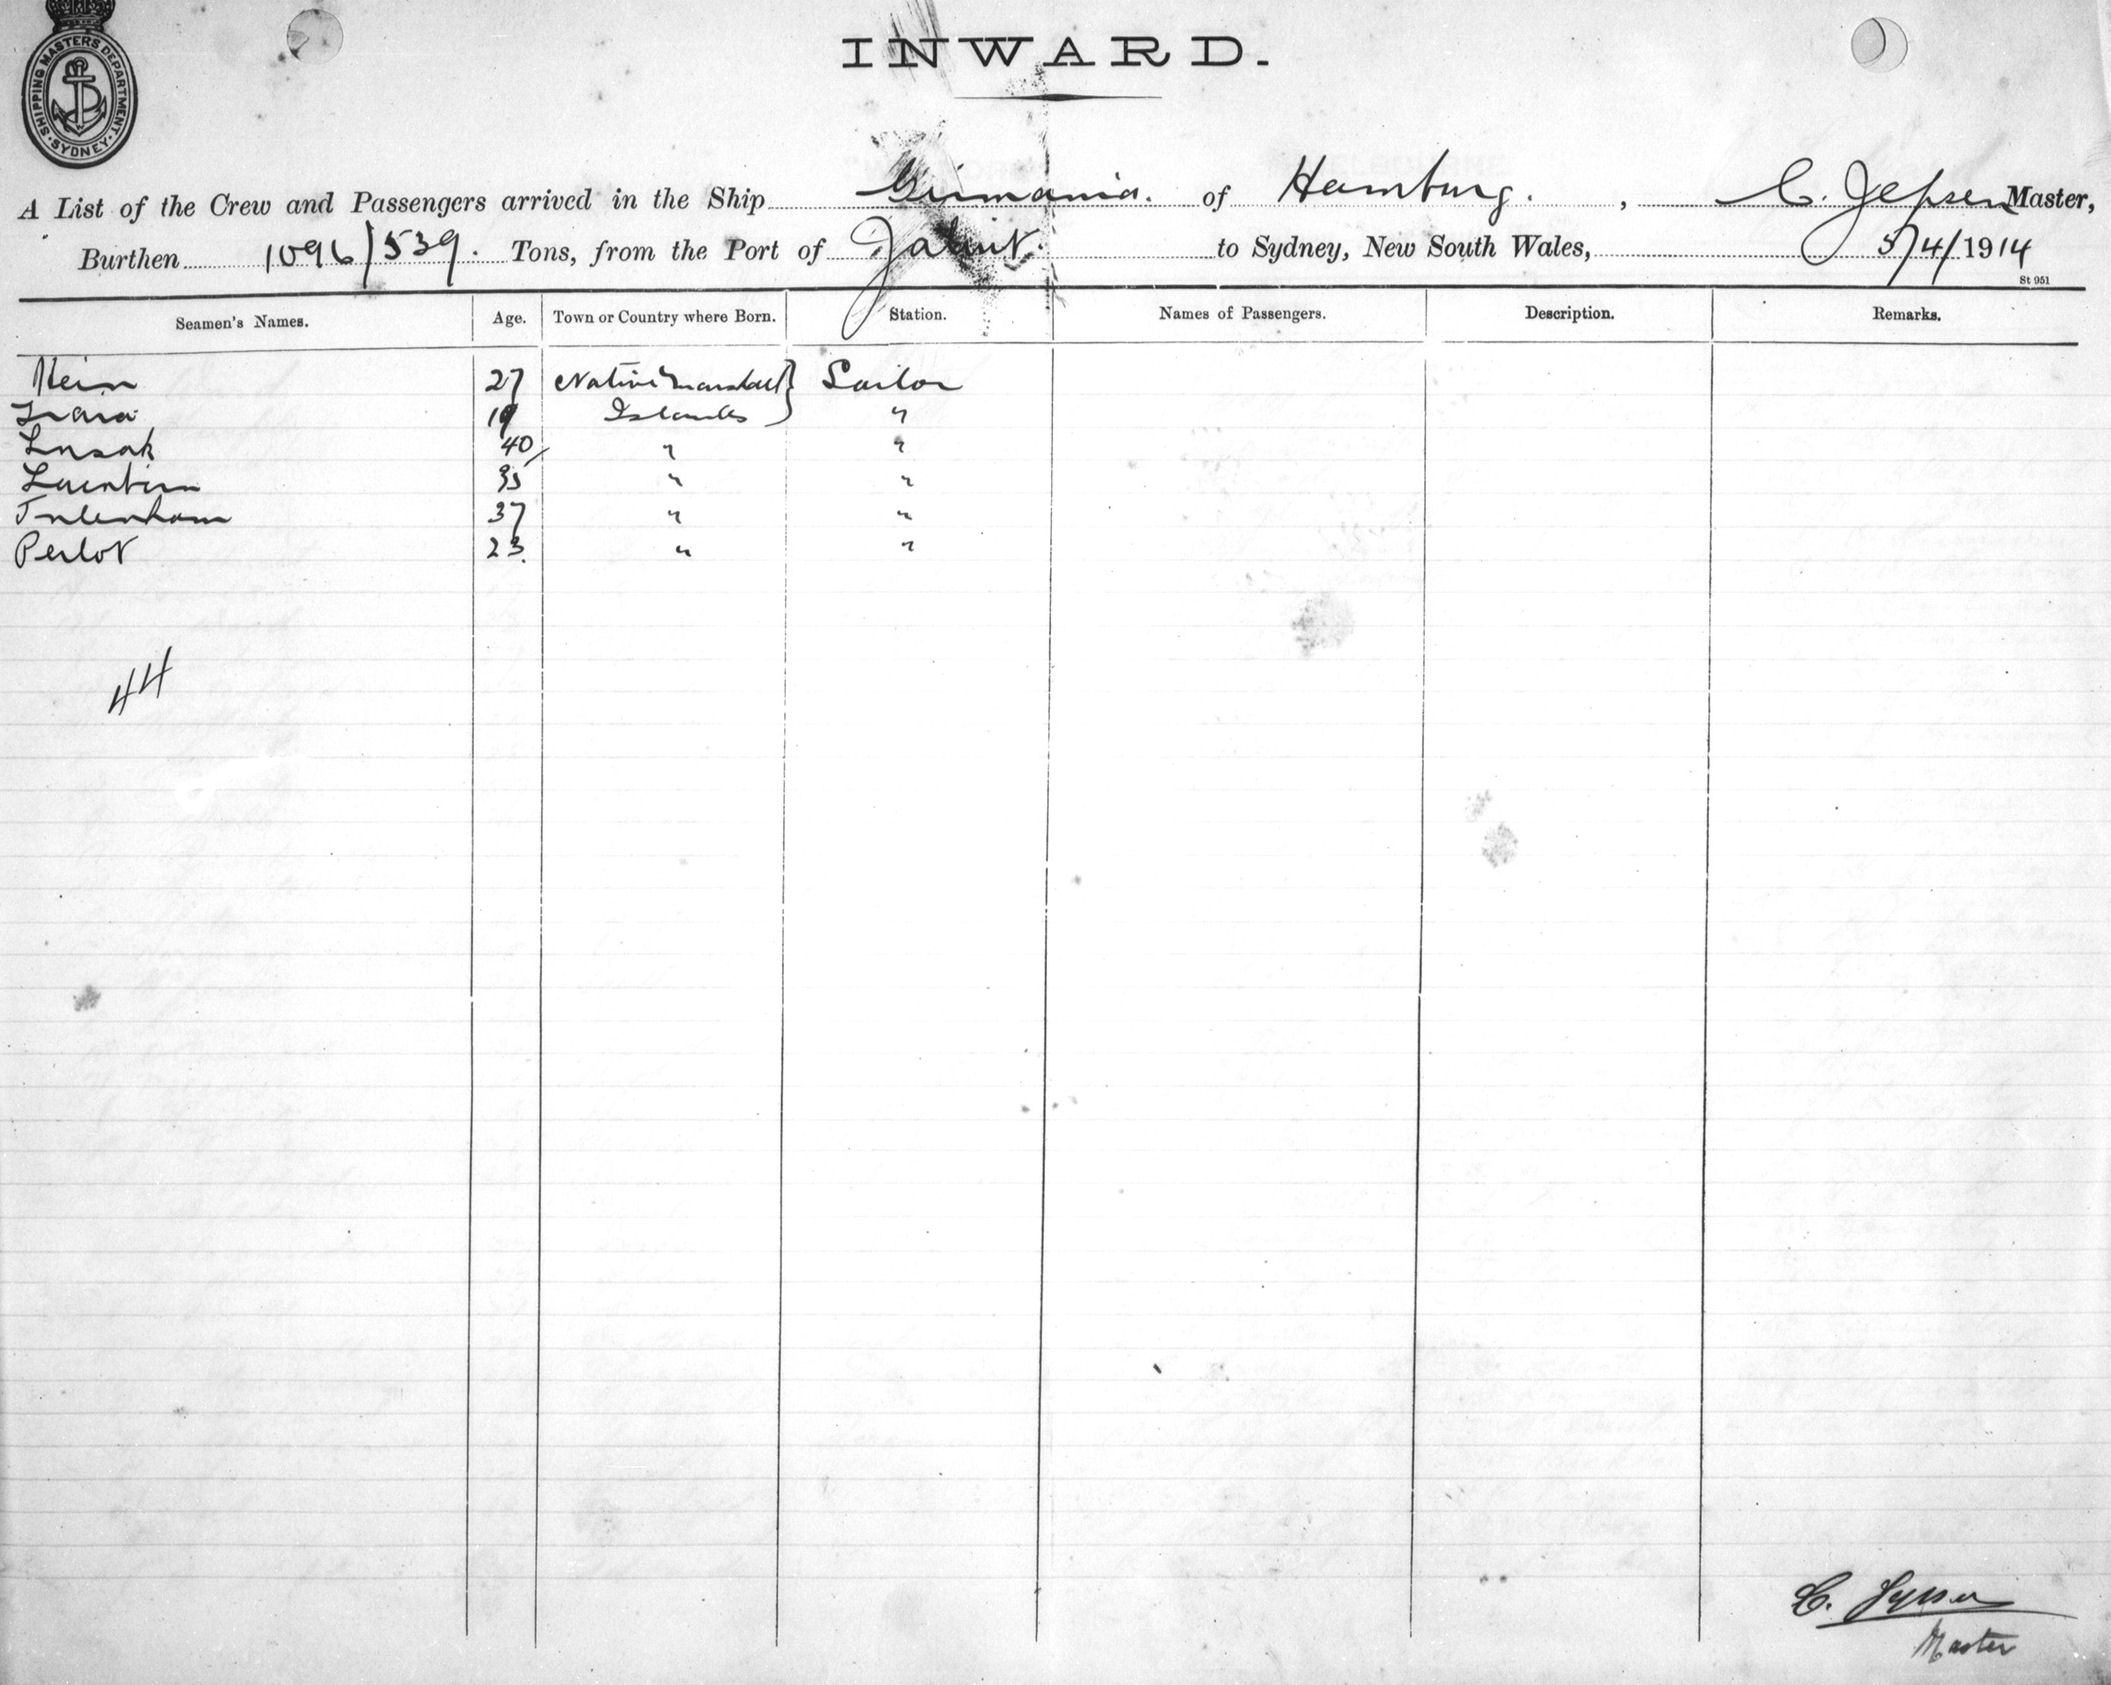 SHIPPING MASTERS DEPARTMENT · SYDNEY ·
INWARD.
A List of the Crew and Passengers arrived in the Ship Germania. of Hamburg. , C. Jepsen Master,
Burthen 1096/539. Tons, from the Port of Jaluit. to Sydney, New South Wales, 5/4/1914
St 951
Seamen's Names. Age. Town or Country where Born. Station. Names of Passengers. Description. Remarks.
Hein 27 Native Marshall } Sailor
19 Islands "
Lusak 40 " "
35 " "
37 " "
Perlot 23. " "
44
C. Jepsen
Master